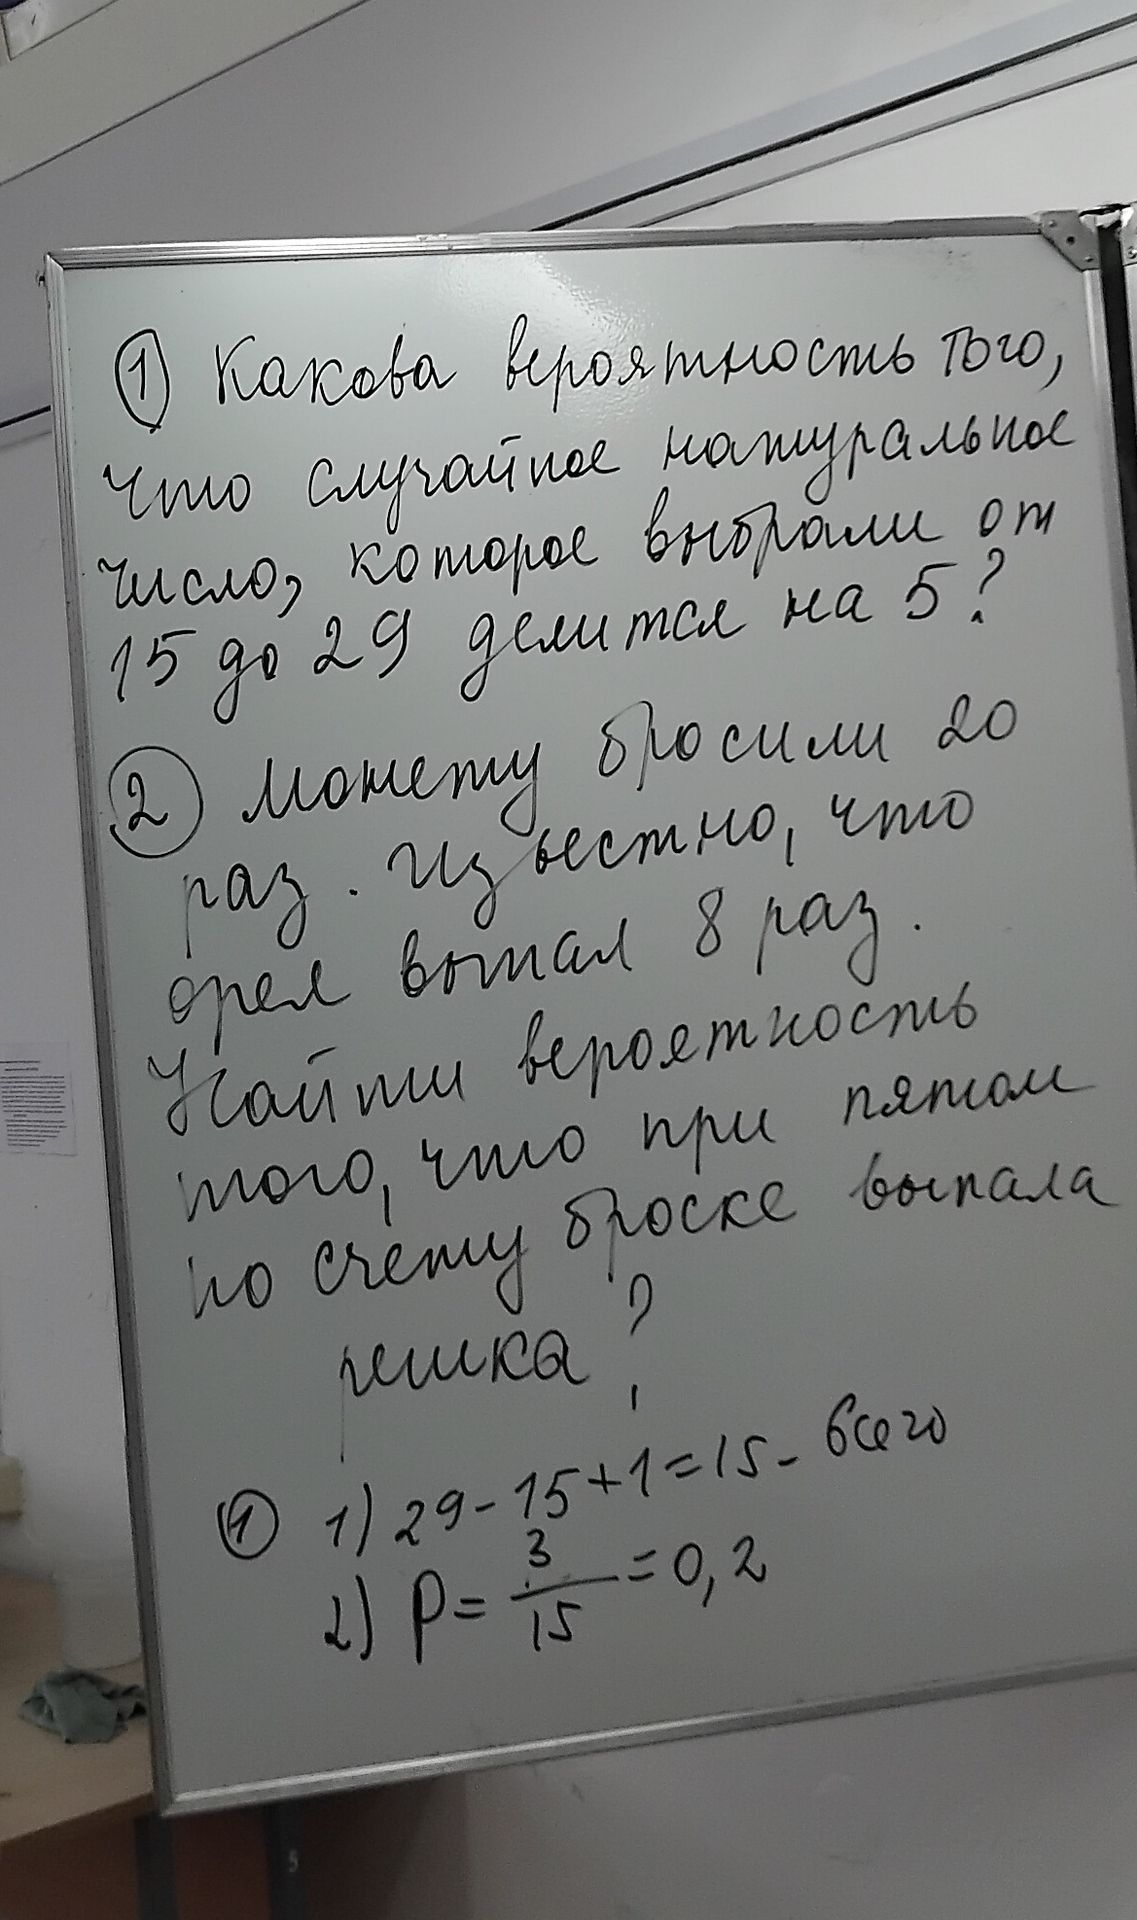 ① Какова вероятность того,
что случайное натуральное
число, которое выбрали от
15 до 29 делится на 5?
② Монету бросили 20
раз. Известно, что
орел выпал 8 раз.
Найти вероятность
того, что при пятом
по счету броске выпала
решка?
① 1) 29-15+1=15- всего
2) P=3/15=0,2
5